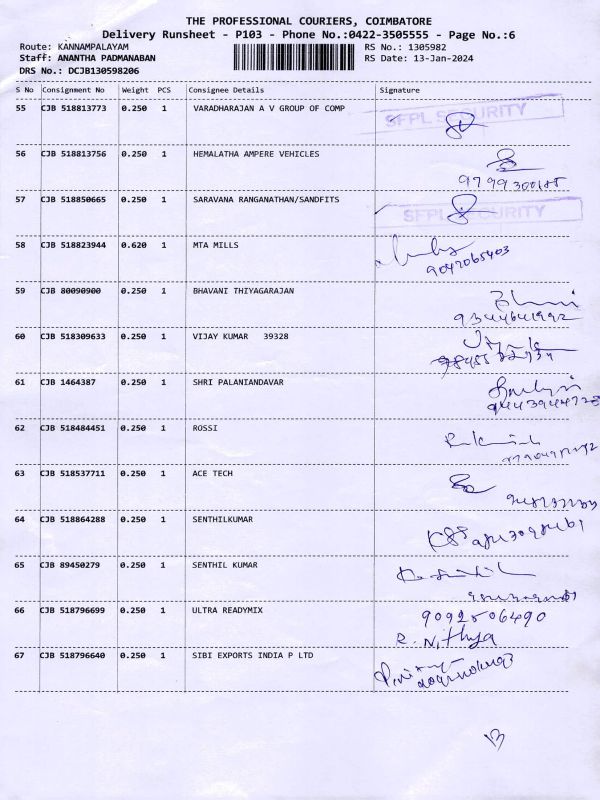 THE PROFESSIONAL COURIERS, COIMBATORE
Delivery Runsheet - P103 - Phone No.:0422-3505555 - Page No.:6
Route: KANNAMPALAYAM RS No.: 1305982
Staff: ANANTHA PADMANABAN RS Date: 13-Jan-2024
DRS No.: DCJB130598206
S No Consignment No Weight PCS Consignee Details Signature
55 CJB 518813773 0.250 1 VARADHARAJAN A V GROUP OF COMP
SFPL SECURITY
56 CJB 518813756 0.250 1 HEMALATHA AMPERE VEHICLES
57 CJB 518850665 0.250 1 SARAVANA RANGANATHAN/SANDFITS
SFPL SECURITY
58 CJB 518823944 0.620 1 MTA MILLS
9047065403
59 CJB 80090900 0.250 1 BHAVANI THIYAGARAJAN
9344641992
60 CJB 518309633 0.250 1 VIJAY KUMAR 39328
61 CJB 1464387 0.250 1 SHRI PALANIANDAVAR
62 CJB 518484451 0.250 1 ROSSI
63 CJB 518537711 0.250 1 ACE TECH
64 CJB 518864288 0.250 1 SENTHILKUMAR
65 CJB 89450279 0.250 1 SENTHIL KUMAR
66 CJB 518796699 0.250 1 ULTRA READYMIX
9092506490
R. Nithya
67 CJB 518796640 0.250 1 SIBI EXPORTS INDIA P LTD
13